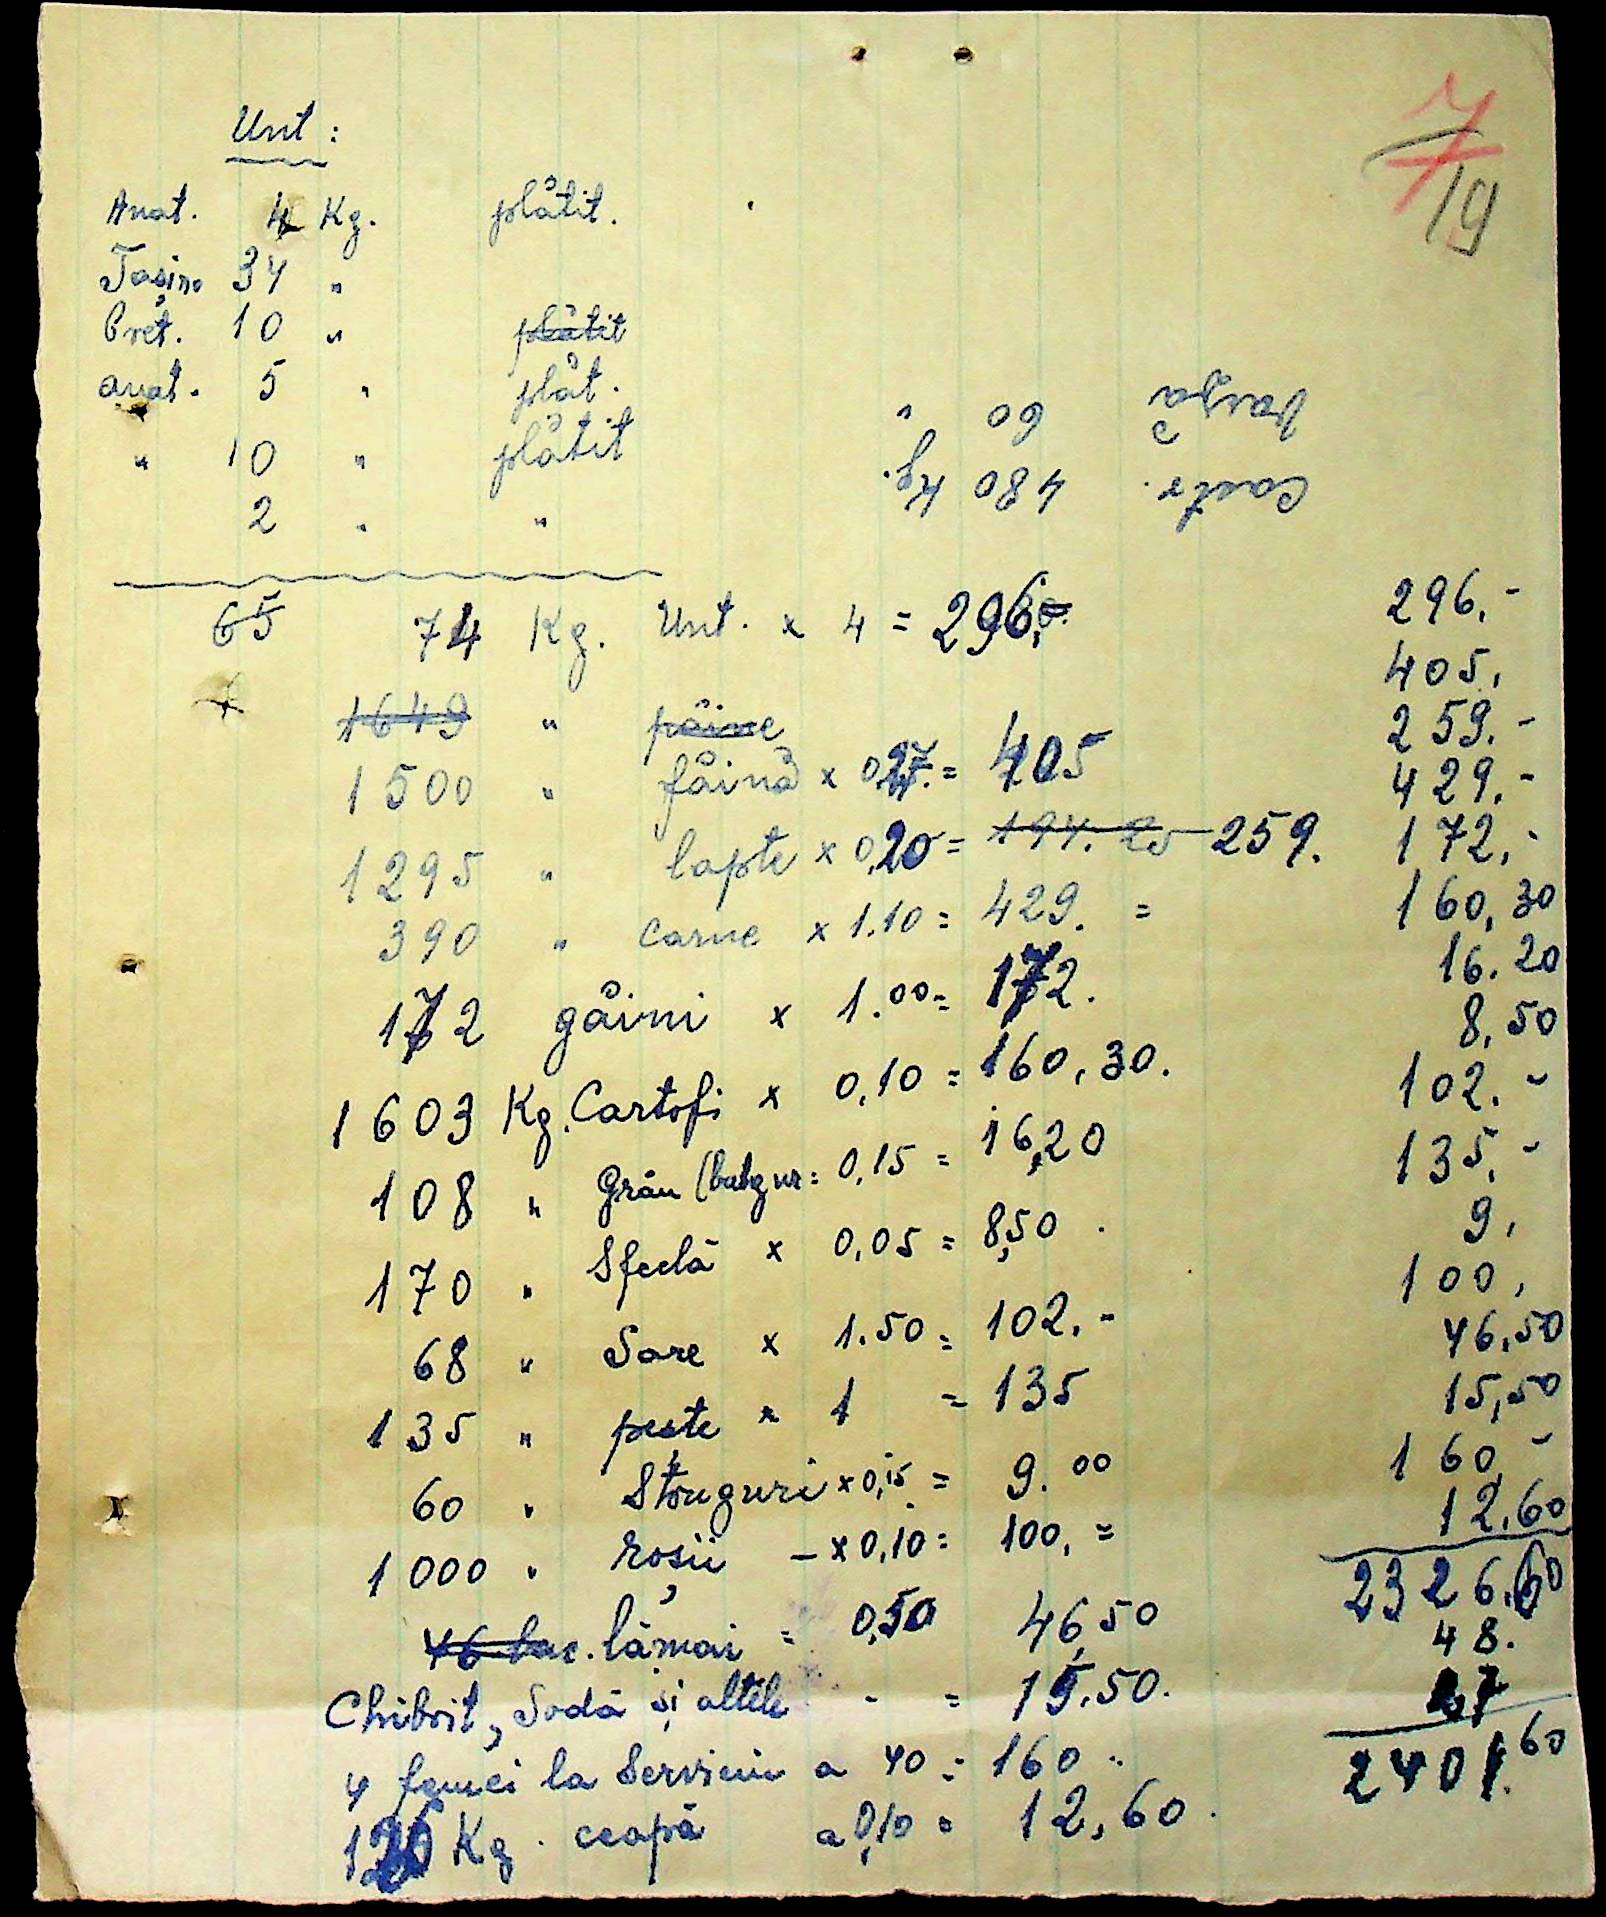 7/19
Unt :
Anat. 4 Kg. plătit.
Tasino 34 "
Cret. 10 " plătit
Anat. 5 " plăt.
" 10 " plătit
2 " "
Castr. 480 Kg.
Varză 60 "
65 74 Kg. Unt. x 4 = 296,- 296.-
405.
1649 " pâine 259.-
1500 " făină x 0,27 = 405 429.-
1295 " lapte x 0,20 = 194.25 259. 172.-
390 " Carne x 1.10 = 429. = 160,30
172 găini x 1.00 = 172. 16.20
8,50
1603 Kg. Cartofi x 0,10 = 160,30. 102.-
108 " Grâu (bulgur = 0,15 = 16,20 135.-
170 " Sfeclă x 0,05 = 8,50. 9,
100,
68 " Sare x 1.50 = 102.- 46,50
135 " peste x 1 = 135 15,50
60 " Struguri x 0,15 = 9.00 160,-
1000 " roșii - x 0,10 = 100,= 12,60
46 buc. lămâi = 0,50 46,50 2326.60
48.
Chibrit, Sodă și altele - = 15.50. 27
4 femei la Serviciu a 40 = 160.- 2401.60
126 Kg. ceapă a 0,10 = 12,60.